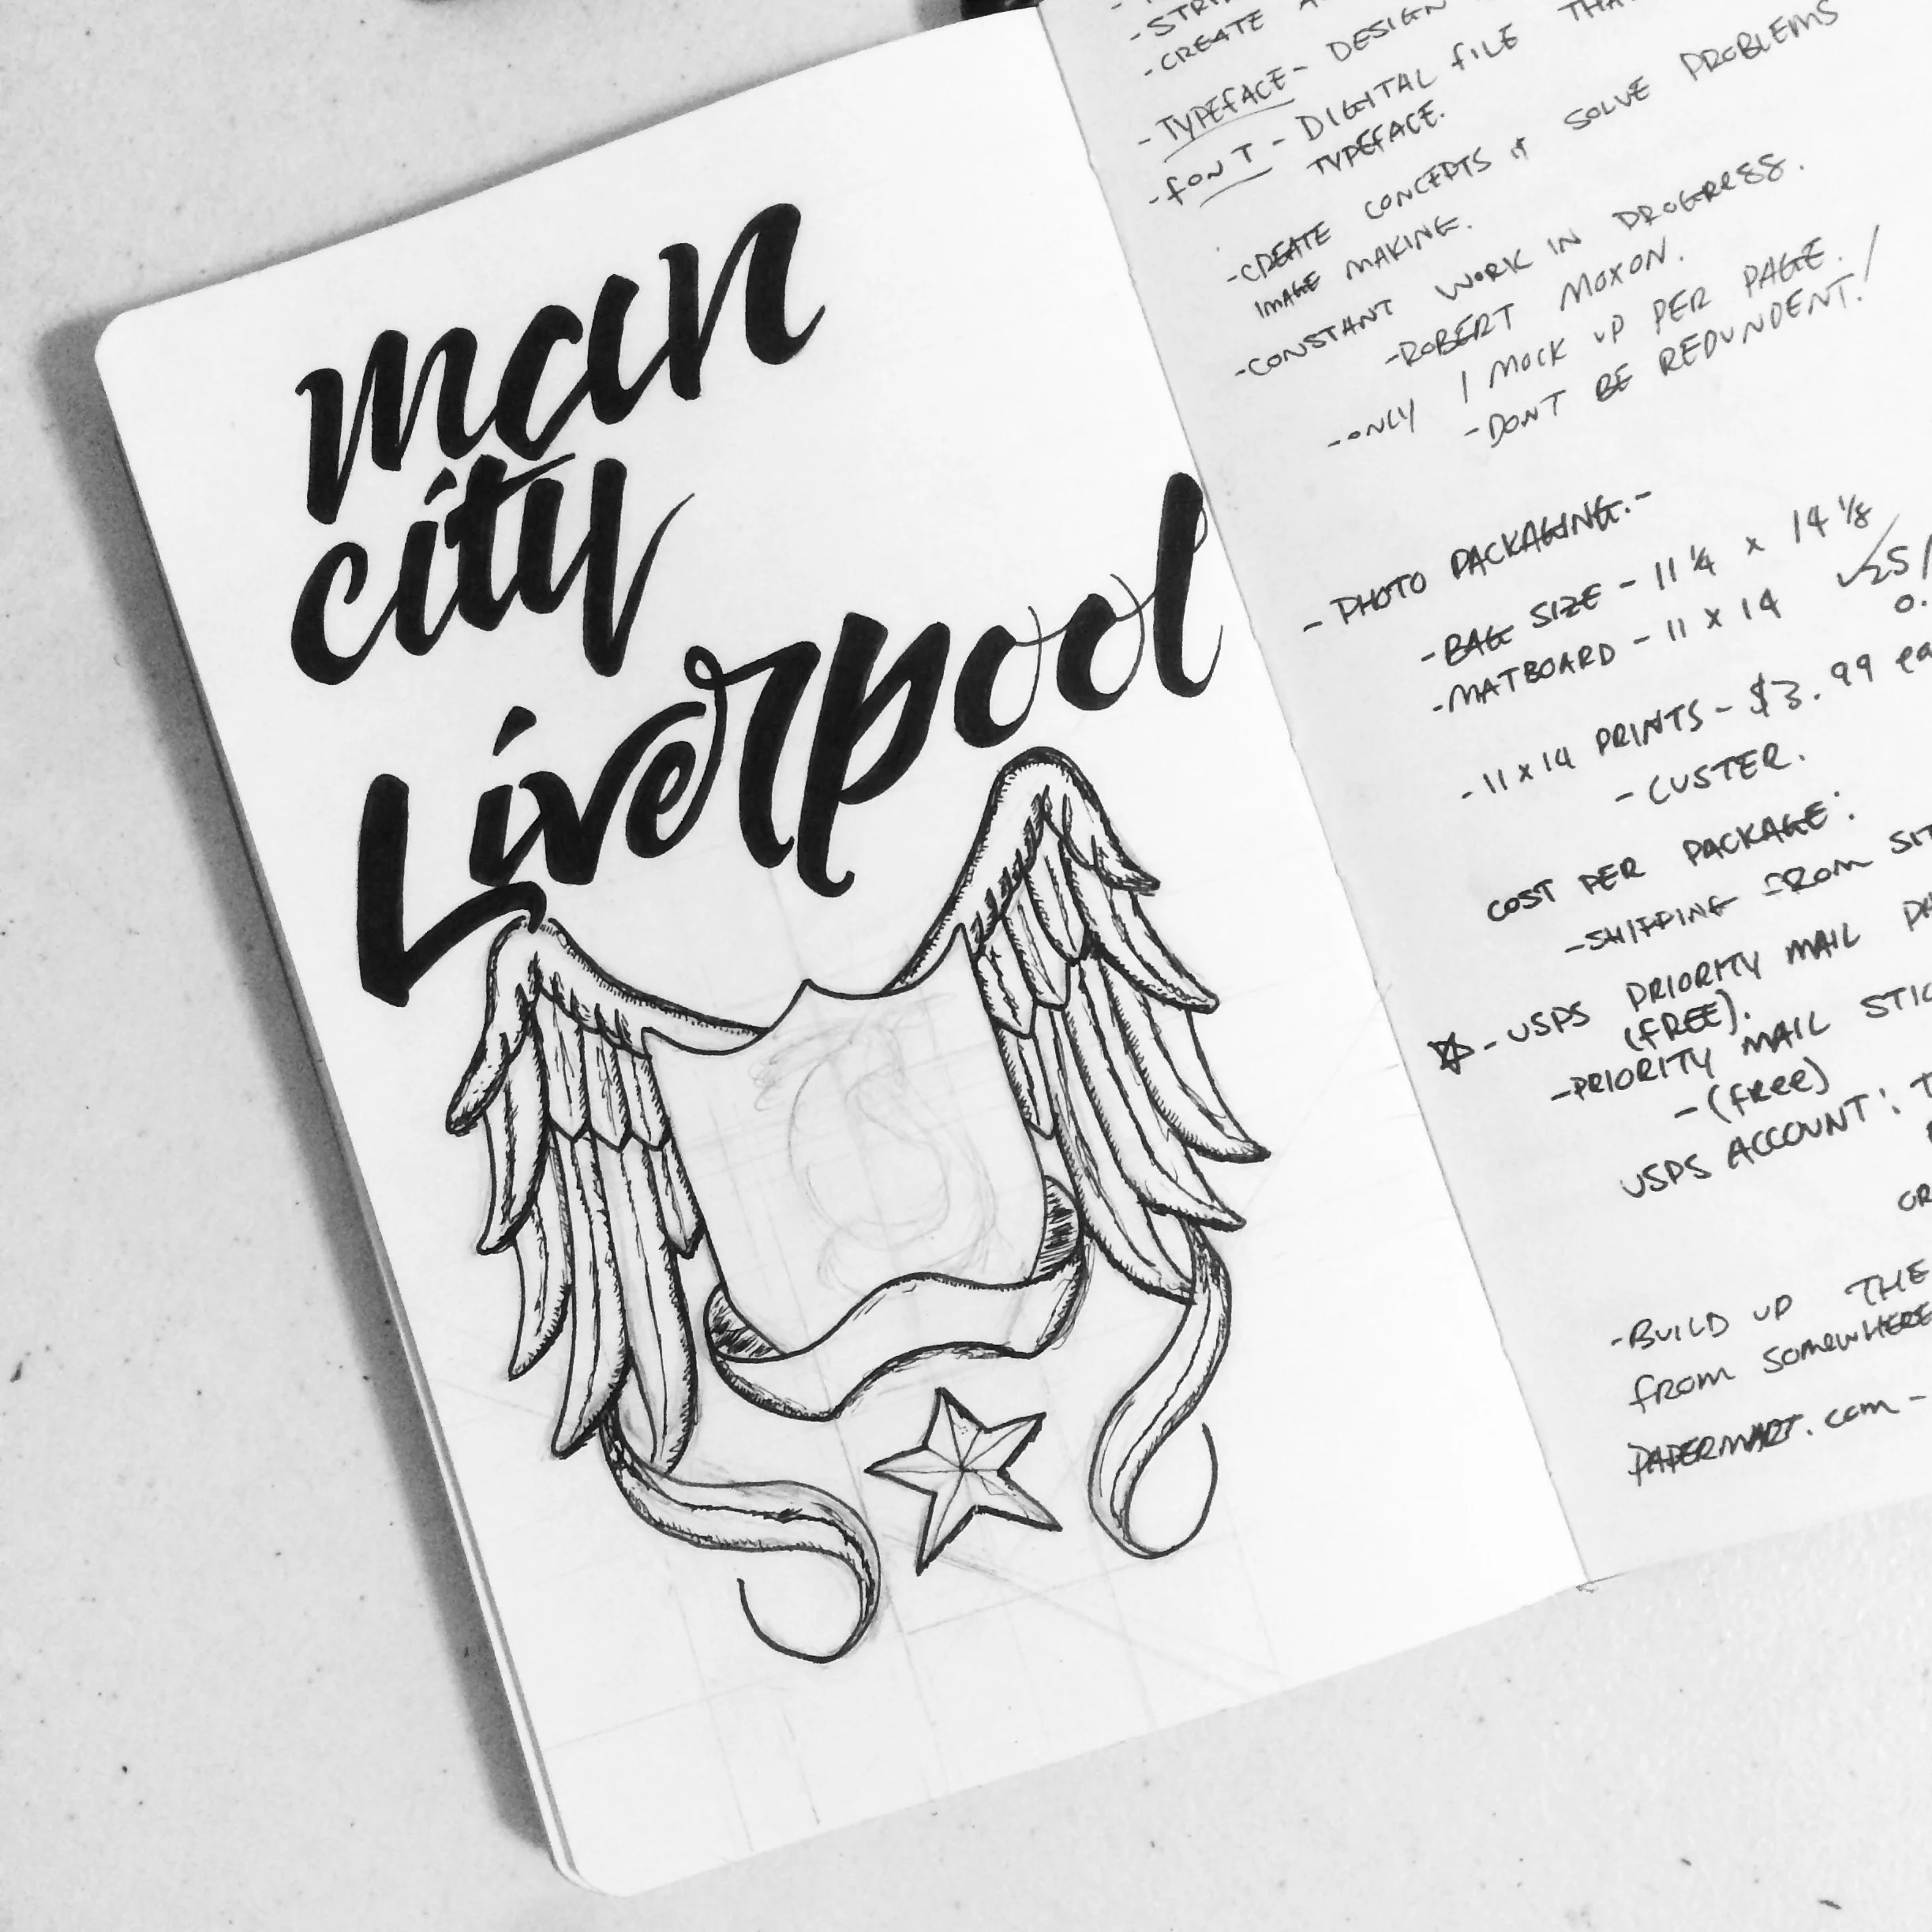 man
city
Liverpool
-CREATE
-TYPEFACE- DESIGN
-FONT - DIGITAL FILE
TYPEFACE.
-CREATE CONCEPTS & SOLVE PROBLEMS
IMAGE MAKING.
-CONSTANT WORK IN PROGRESS.
-ROBERT MOXON.
-ONLY 1 MOCK UP PER PAGE.
-DONT BE REDUNDENT!
- PHOTO PACKAGING.-
-BAG SIZE - 11 1/4 x 14 1/8
-MATBOARD - 11 x 14
-11 x 14 PRINTS - $3.99 ea
- CUSTER.
COST PER PACKAGE:
-SHIPPING FROM
-USPS PRIORITY MAIL
(FREE).
-PRIORITY MAIL
-(free)
USPS ACCOUNT:
-BUILD UP THE
FROM SOMEWHERE
PAPERMART.com -